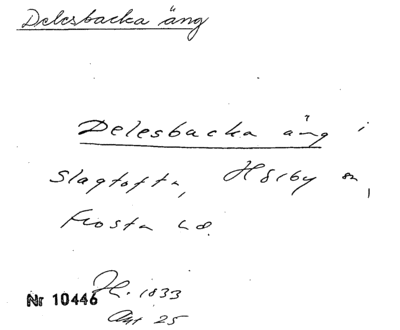 Delesbacka äng
Delesbacka äng i
Slagtofta, Hörby sn,
Frosta hd.
Nr 10446 H. 1833
Akt 25